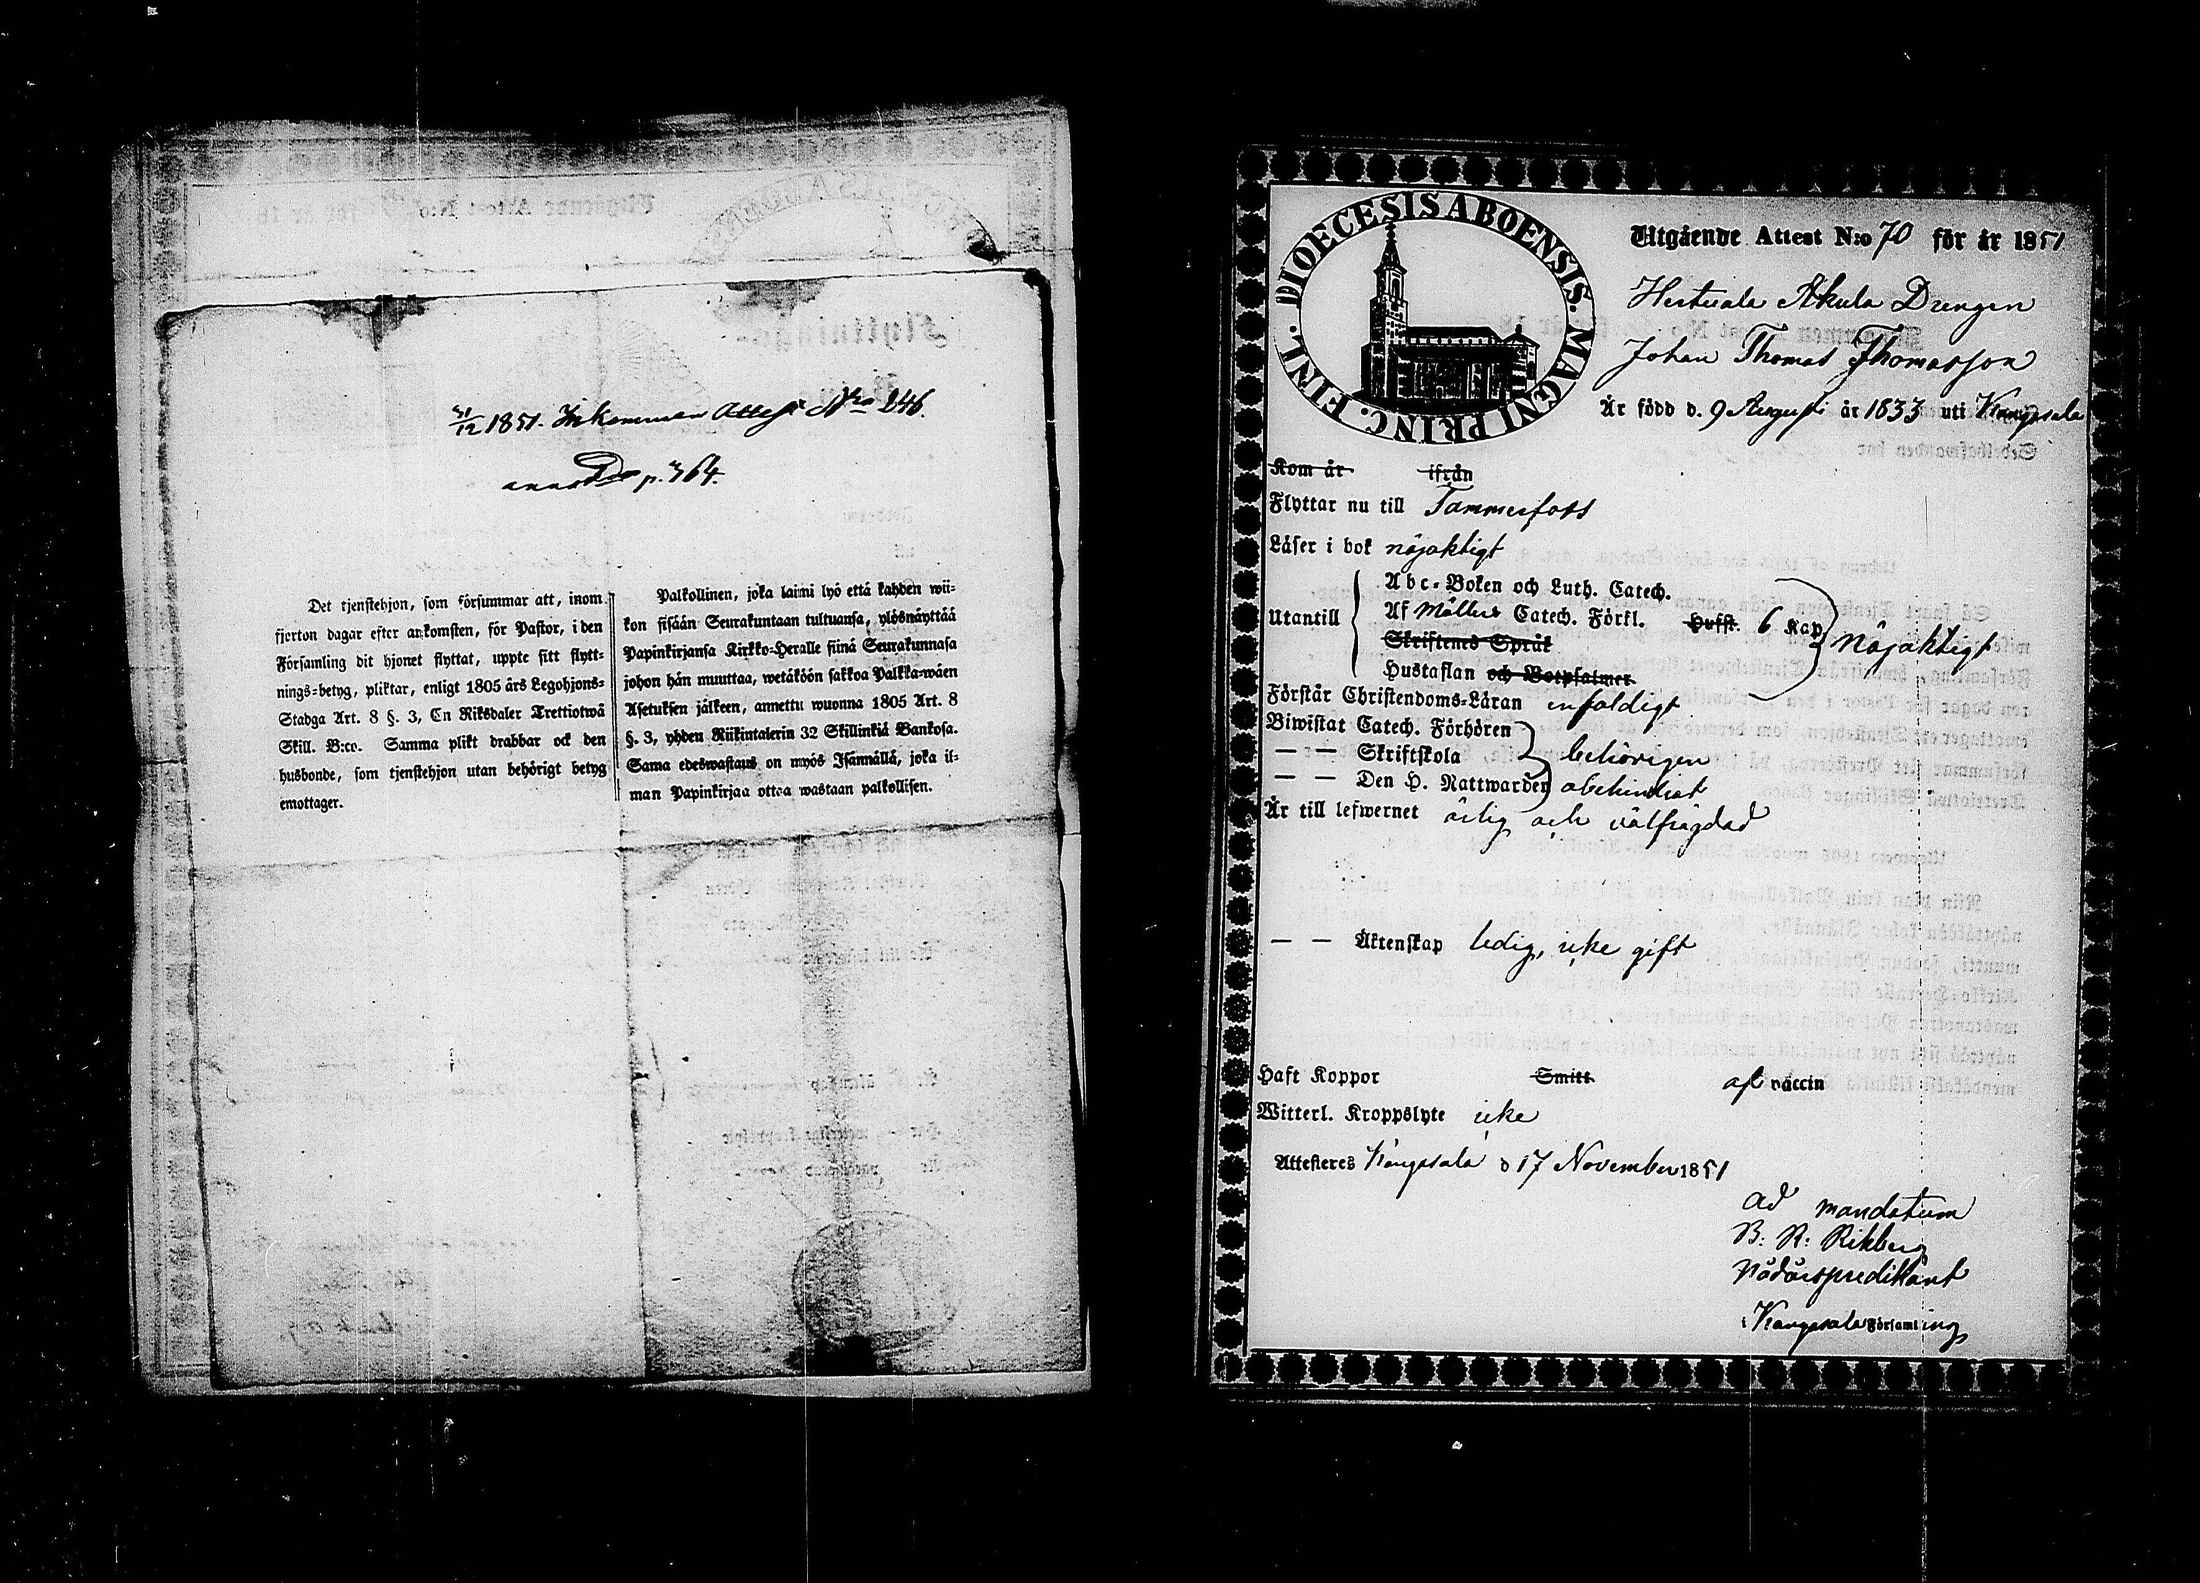 31/12 1851. Inkommen Attest Nro 246.
p. 364.
Det tjenstehjon, som försummar att, inom
fjorton dagar efter ankomsten, för Pastor, i den
Församling dit hjonet flyttat, uppte sitt flytt-
nings-betyg, pliktar, enligt 1805 års Legohjons-
Stadga Art. 8 §. 3, En Riksdaler Trettiotwå
Skill. B:co. Samma plikt drabbar ock den
husbonde, som tjenstehjon utan behörigt betyg
emottager.
Palkollinen, joka laimi lyö että kahden wii-
kon sisään Seurakuntaan tultuansa, ylösnäyttää
Papinkirjansa Kirkko-Heralle siinä Seurakunnasa
johon hän muuttaa, wetäköön sakkoa Palkka-wäen
Asetuksen jälkeen, annettu wuonna 1805 Art. 8
§. 3, yhden Riikintalerin 32 Skillinkiä Bankosa.
Sama edeswastaus on myös Isännällä, joka il-
man Papinkirjaa ottaa wastaan palkollisen.
DIOECESIS ABOENSIS. MAGNI PRINC. FINL.
Utgående Attest N:o 70 för år 1851
Hertuala Akula Drengen
Johan Thomas Thomasson
Är född d. 9 Augusti år 1833 uti Kangasala
Kom år ifrån
Flyttar nu till Tammerfors
Läser i bok nöjaktigt
Utantill
Abc-Boken och Luth. Catech.
Af Möllers Catech. Förkl. Hufst. 6 Kap
Skriftenes Språk
Hustaflan och Botpsalmer
nöjaktigt
Förstår Christendoms-Läran enfaldigt
Biwistat Catech. Förhören
— — Skriftskola behörigen
— — Den H. Nattwarden obehindrat
Är till lefwernet ärlig och välfrägdad
— — Äktenskap ledig, icke gift
Haft Koppor Smitt af vaccin
Witterl. Kroppslyte icke
Attesteres Kangasala d 17 November 1851
ad mandatum
B: R: Rikberg
Nådårspredikant
i Kangasala Församling